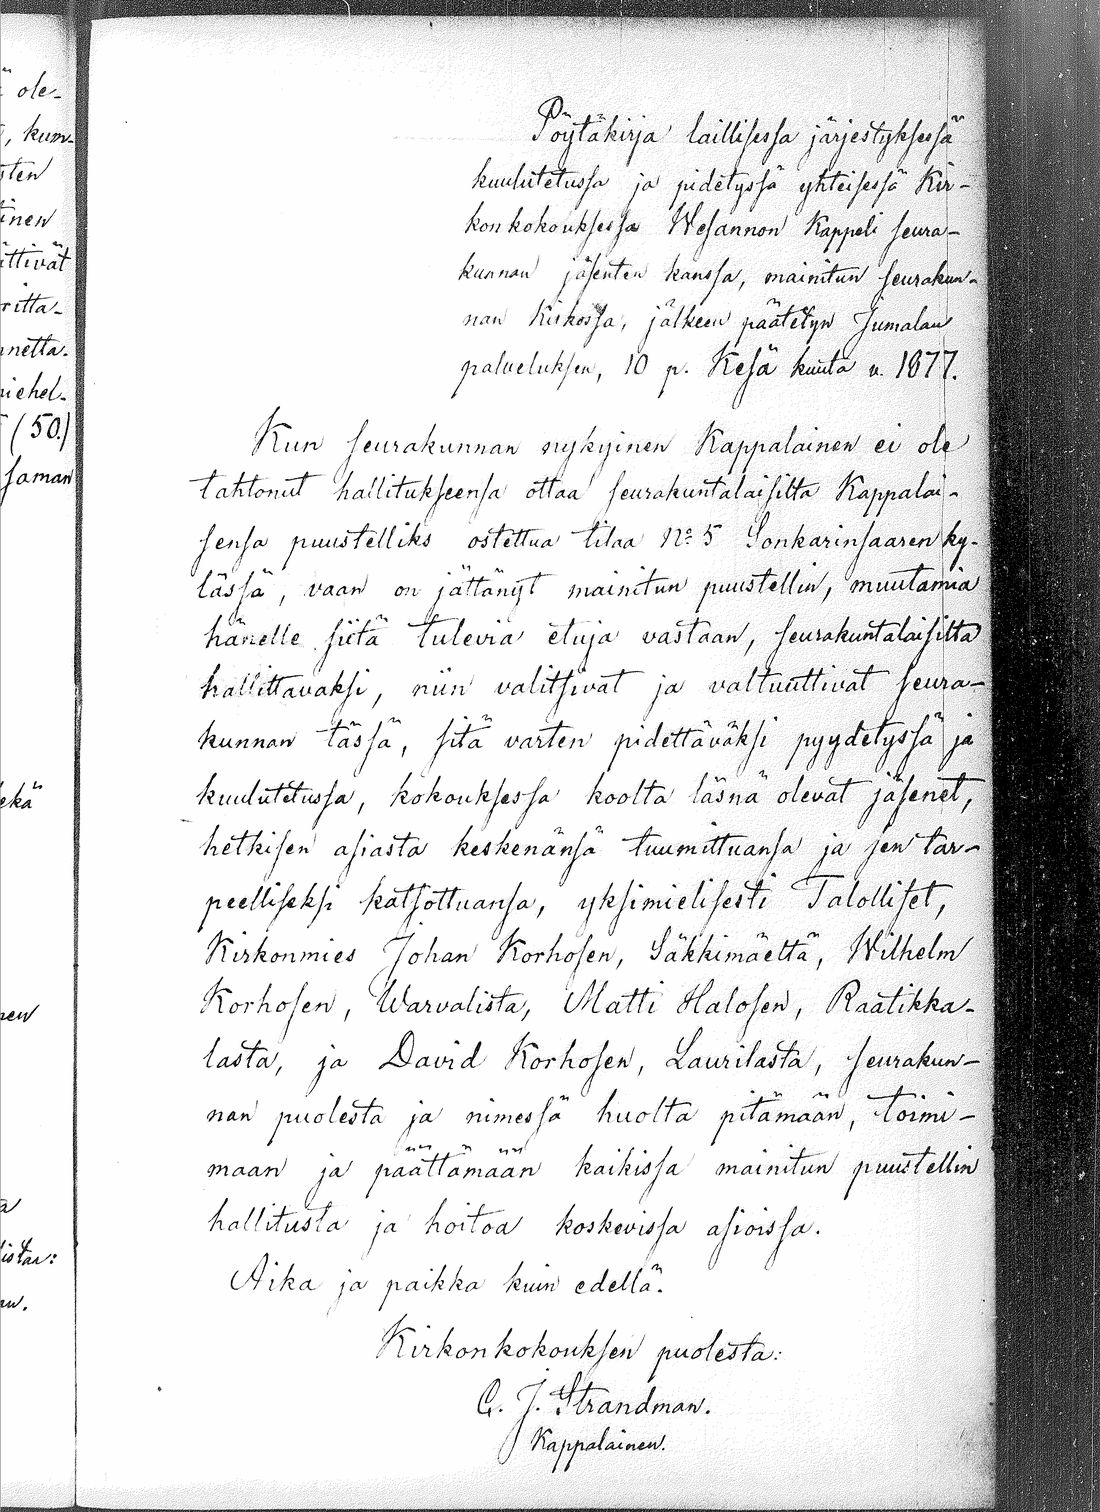 ole-
, kum-
sten
inen
ittivät
ritta-
nnetta-
iehel-
(50.)
saman
ekä
nen
a
listaa:
Pöytäkirja laillisessa järjestyksessä
kuulutetussa ja pidetyssä yhteisessä Kir-
konkokouksessa Wesannon Kappeli seura-
kunnan jäsenten kanssa, mainitun seurakun-
nan Kirkossa, jälkeen päätetyn Jumalan
palveluksen, 10 p. Kesä kuuta v. 1877.
Kun seurakunnan nykyinen Kappalainen ei ole
tahtonut hallitukseensa ottaa seurakuntalaisilta Kappalai-
sensa puustelliks ostettua tilaa No 5 Sonkarinsaaren ky-
lässä, vaan on jättänyt mainitun puustellin, muutamia
hänelle siitä tulevia etuja vastaan, seurakuntalaisilta
hallittavaksi, niin valitsivat ja valtuuttivat seura-
kunnan tässä, sitä varten pidettäväksi pyydetyssä ja
kuulutetussa, kokouksessa koolta läsnä olevat jäsenet,
hetkisen asiasta keskenänsä tuumittuansa ja sen tar-
peelliseksi katsottuansa, yksimielisesti Talolliset,
Kirkonmies Johan Korhosen, Säkkimäeltä, Wilhelm
Korhosen, Warvalista, Matti Halosen, Raatikka-
lasta, ja David Korhosen, Laurilasta, seurakun-
nan puolesta ja nimessä huolta pitämään, toimi-
maan ja päättämään kaikissa mainitun puustellin
hallitusta ja hoitoa koskevissa asioissa.
Aika ja paikka kuin edellä.
Kirkonkokouksen puolesta:
G. J. Strandman.
Kappalainen.